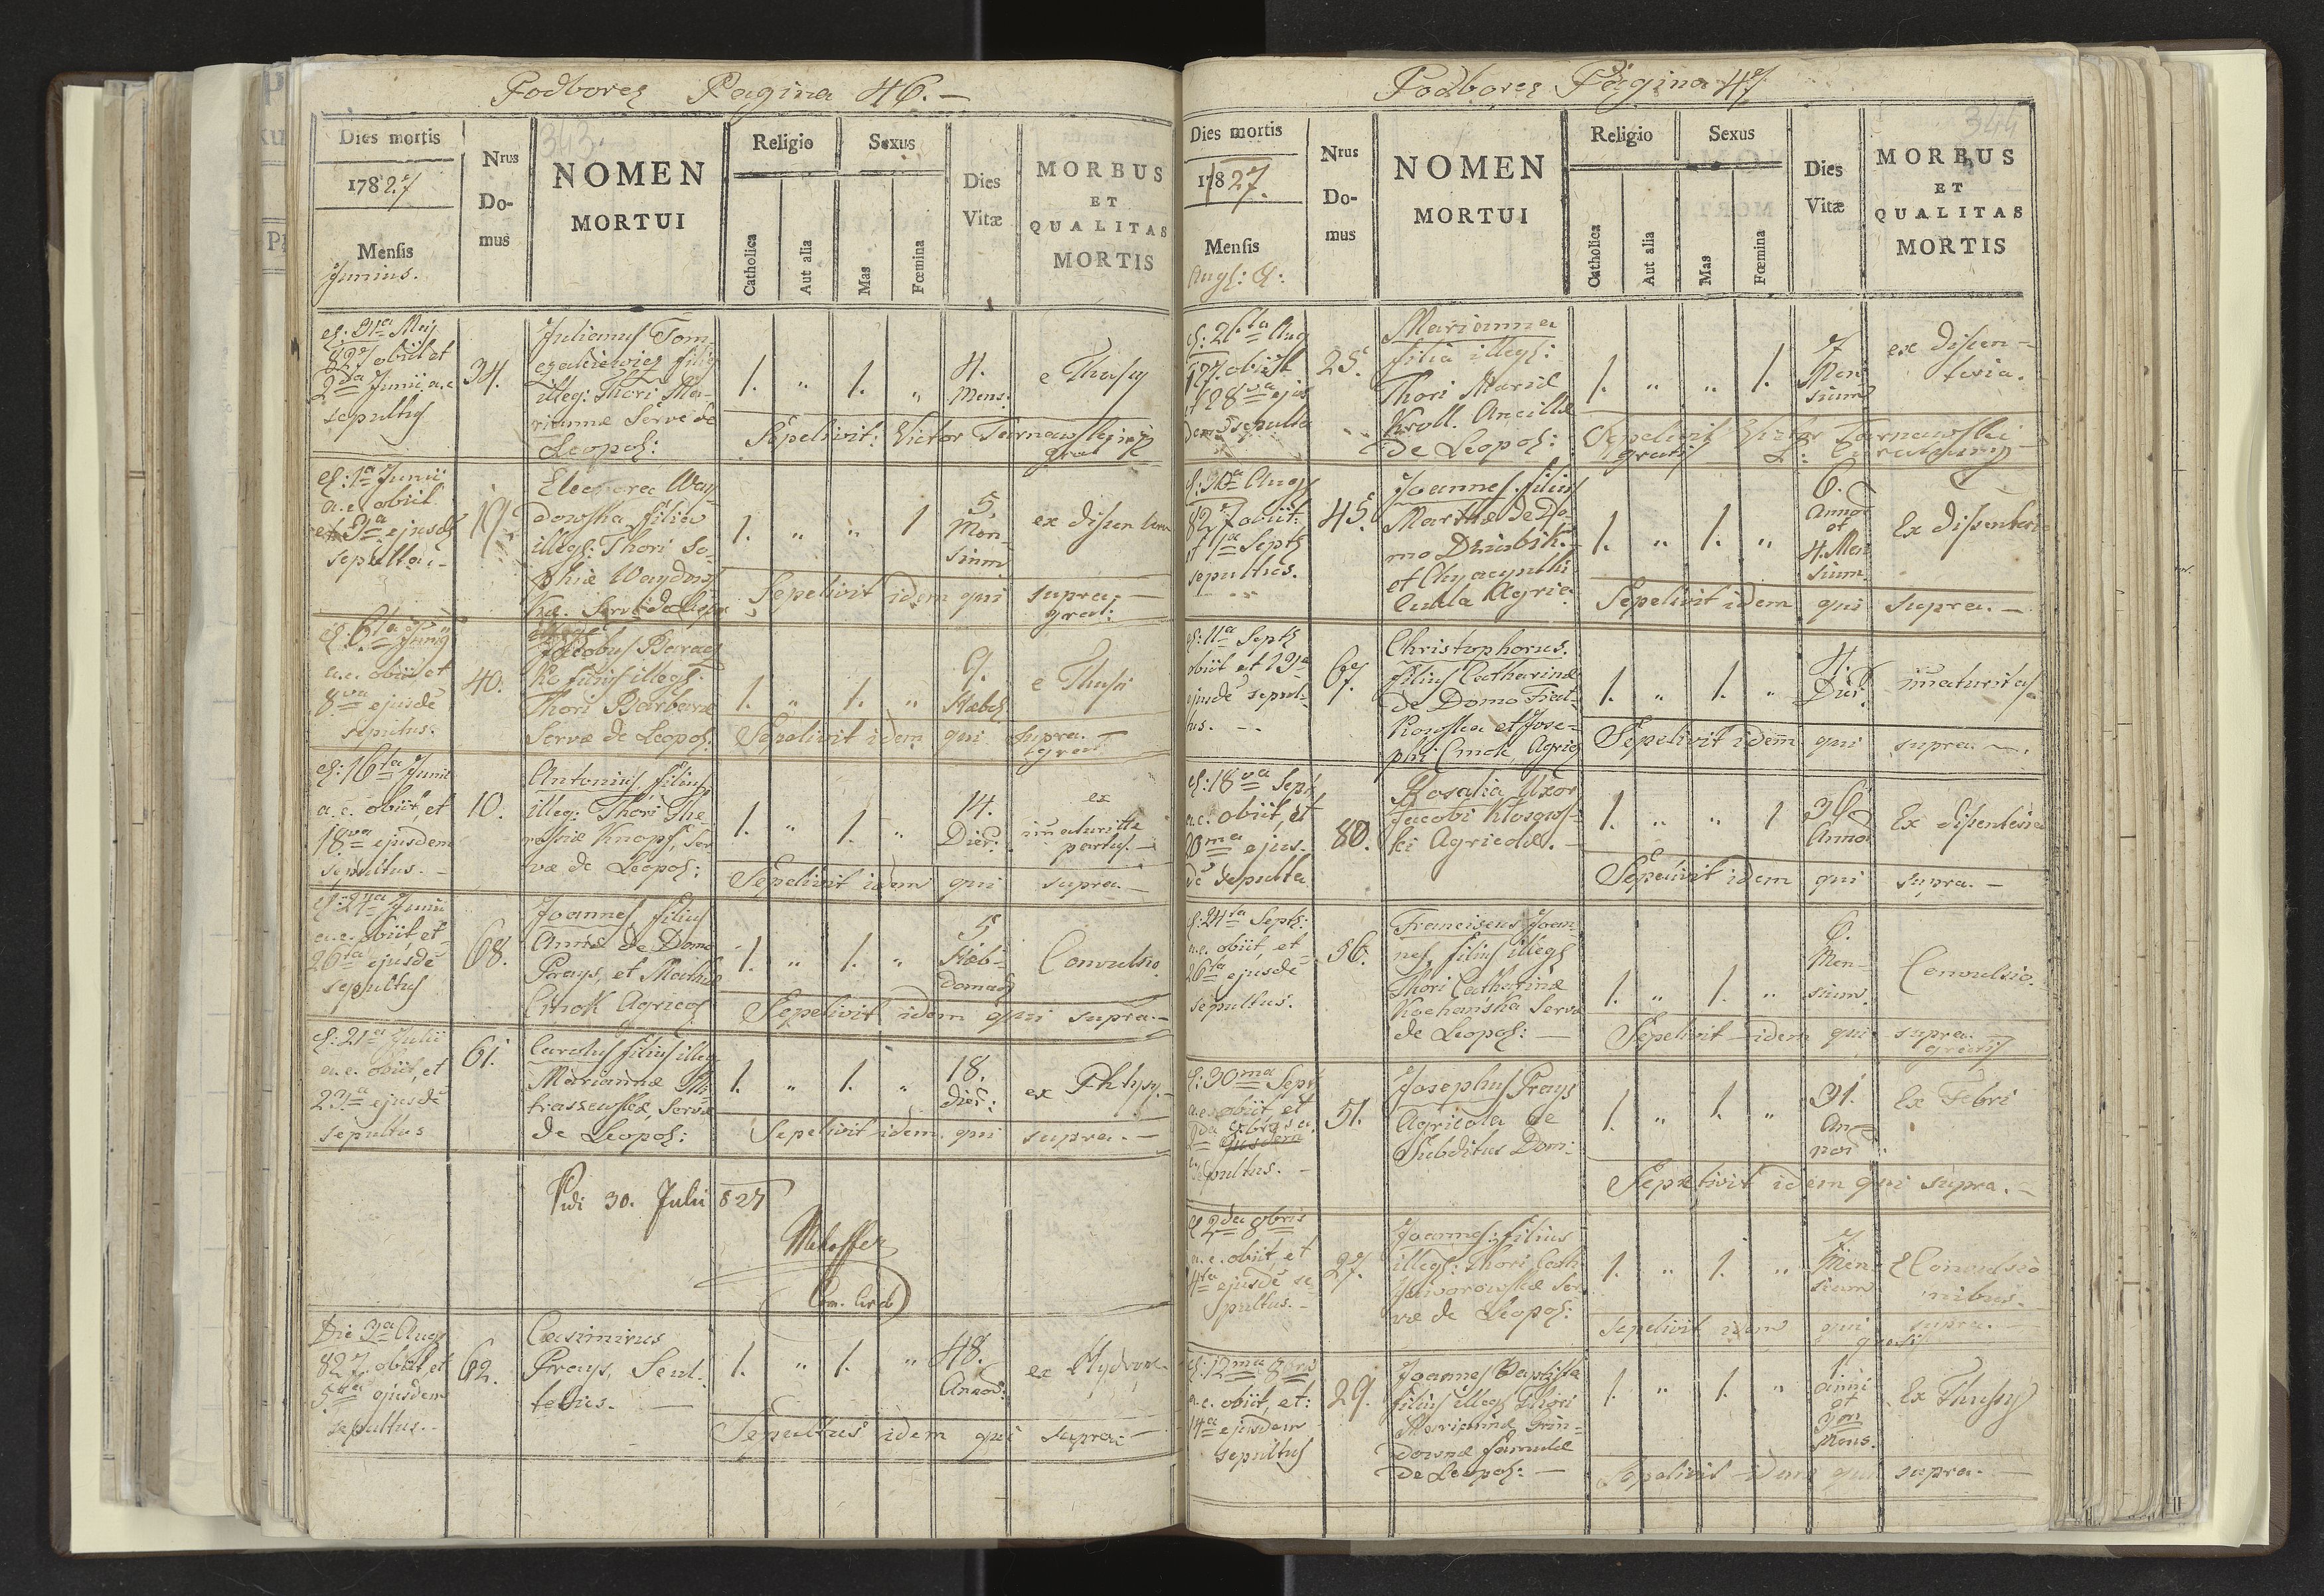 Podborez Pagina 46. —
343.
Dies mortis
Nrus
Do-
mus
NOMEN
MORTUI
Religio
Sexus
Dies
Vitæ
MORBUS
ET
QUALITAS
MORTIS
1782.7
Mensis
Junius.
Catholica
Aut alia
Mas
Fœmina
d: 31a Maij
827 obiit et
2da Junii a.c
sepultus
34.
Julianus Tom-
filius
illeg: Thori Ma-
riannæ Servæ de
Leopol:
1. " 1. "
4.
Mens:
e Thusy
Sepelivit: Victor Tarnawski
grat
d: 1a Junii
a.c. obiit
et 3a ejusd
sepulta. -
19.
Eleonora Way-
dowska filia
illegi: Thori So-
phiæ Waydows
kæ. Servæ de Leop
1. " " 1
5.
Men-
sium
ex disen
Sepelivit idem qui supra. —
grat:
d: 6ta Junij
a.c. obiit et
8va ejusdē
sepultus.
40.
Jacobus Barag
ko filius illegi:
Thori Barbaræ
Servæ de Leopol:
1. " 1. "
9.
Hebd.
e Thusi
Sepelivit idem qui supra. —
grat:
d: 16ta Junii
a.c. obiit, et
18va ejusdem
sepultus. -
10.
Antonius filius
illeg: Thori The-
resiæ Knopf, Ser
væ de Leopol:
1. " 1. "
14.
Dier:
ex
immaturitte
partus. —
Sepelivit idem qui supra. —
d: 24ta Junii
a.c. obiit, et
26ta ejusdē
sepultus
68.
Joannes filius
Annæ de Domo
Prays, et Mathiæ
Cmok Agricol
1. " 1. "
5
Heb-
domad
Convulsio.
Sepelivit idem qui supra. —
d: 21a Julii
a.c. obiit, et
23a ejusdē
sepultus
61.
Carolus filius illeg
Mariannæ
Servæ
de Leopol:
1. " 1. "
18.
dier:
ex Phtysy. -
Sepelivit idem qui supra. —
Vidi 30. Julii 827
Mehoffer
Com. Circ
Die 3a Aug
827. obiit et
5ta ejusdem
sepultus. -
62.
Casimirus
Prays, Scul-
tetus. —
1. " 1. "
48.
Annor:
ex Hydrope
Sepultus idem qui supra —
Podborez Pagina 47
344
Dies mortis
Nrus
Do-
mus
NOMEN
MORTUI
Religio
Sexus
Dies
Vitæ
MORBUS
ET
QUALITAS
MORTIS
17827.
Mensis
Catholica
Aut alia
Mas
Fœmina
d: 26ta Aug
obiit
et 28va ejus
dem sepulta
25.
Marianna
filia illegi:
Thori Mariæ
Kroll. Ancillæ
de Leopol:
1. " " 1.
7
Men
sium
ex disen-
teria.
Sepelivit Victor Tarnawski
gratis
d: 30a Aug
827 obiit:
et 1a Septb
sepultus.
45.
Joannes filius
Marthæ de Do-
mo
et Chyacynthi
Agric
1. " 1. "
6.
Annor
et
4. Men
sium.
Ex disenteri
Sepelivit idem qui supra. —
d: 11a Septb
obiit et 13a
ejusdē sepul-
tus. -
67.
Christophorus.
filius Catharinæ
de Domo Fiał-
kowska et Jose-
phi Cmok, Agric
1. " 1. "
4.
Dier.
immaturitas
Sepelivit idem qui supra. —
d: 18va Sept
a.c. obiit, et
20ma ejus-
dē sepulta
80.
Rosalia Uxor
Jacobi Kłosows-
ki Agricolæ. -
1. " " 1
36
Annor
Ex disenteria
Sepelivit idem qui supra. —
d: 24ta Septb:
a.c. obiit, et
26ta ejusdē
sepultus.
56.
Franciscus Joan-
nes, filius illegi
Thori Catharinæ
Kochańska Servæ
de Leopol: —
1. " 1. "
6.
Men-
sium.
Convulsio.
Sepelivit idem qui supra.
gratis
d: 30ma Sept
a.c. obiit, et
2da 8bris a.c.
ejusdem
sepultus. -
51.
Josephus Prays
Agricola de
Subditus Dom:
1. " 1. "
31.
An-
nor
Ex Febri
Sepelivit idem qui supra. —
d 2da 8bris
a.c. obiit, et
4ta ejusdē se
pultus. -
27.
Joannes: filius
illegi: Thori Cath:
Jaworowskæ Ser
væ de Leopol:
1. " 1. "
7
Men-
sium
E Convulsio
nibus.
Sepelivit idem qui supra. —
gratis
d: 12ma 8bris
a.c. obiit, et:
14a ejusdem
sepultus
29.
Joannes Baptista
filius illeg Thori
Mariannæ Grin-
downæ famulæ
de Leopol: —
1. " 1. "
1
anni
et
3um
Mens.
Ex Thusy
Sepelivit idem qui supra. —